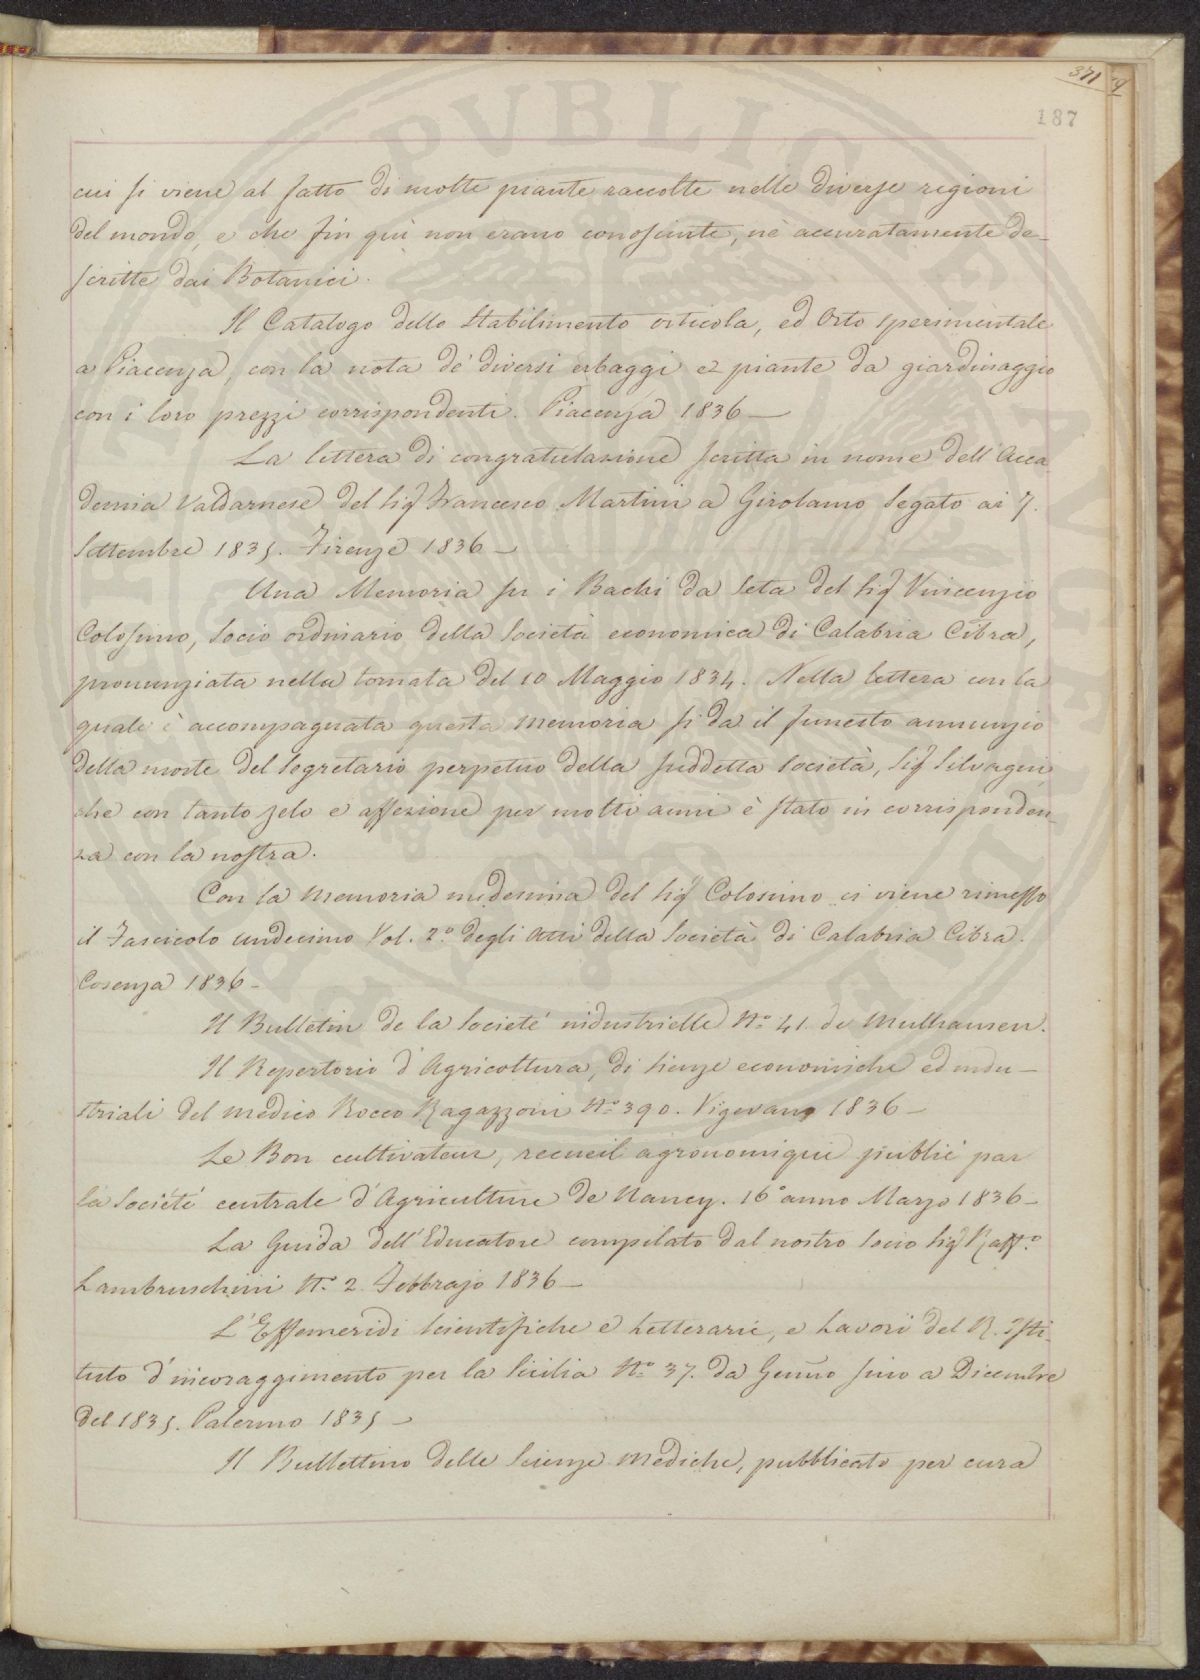 371
187
cui si viene al fatto di molte piante raccolte nelle diverse regioni
del mondo, e che fin quì non erano conosciute, nè accuratamente de-
scritte dai Botanici.
Il Catalogo dello Stabilimento orticola, ed Orto sperimentale
a Piacenza, con la nota de' diversi erbaggi e piante da giardinaggio
con i loro prezzi corrispondenti. Piacenza 1836 —
La lettera di congratulazione scritta in nome dell'Acca-
demia Valdarnese del Sig Francesco Martini a Girolamo Segato ai 7.
Settembre 1835. Firenze 1836 —
Una Memoria su i Bachi da Seta del Sig Vincenzio
Colosimo, Socio ordinario della Società economica di Calabria Citra,
pronunziata nella tornata del 10 Maggio 1834. Nella lettera con la
quale è accompagnata questa memoria si da il funesto annunzio
della morte del Segretario perpetuo della suddetta Società, Sig Silvagni,
che con tanto zelo e affezione per molti anni è stato in corrisponden-
za con la nostra.
Con la memoria medesima del Sig Colosimo ci viene rimesso
il Fascicolo undecimo Vol. 2.º degli Atti della Società di Calabria Citra.
Cosenza 1836 —
Il Bulletin de la Societé industrielle Nº 41 de Mulhausen.
Il Repertorio d'Agricoltura, di Sienze economiche ed indu-
striali del medico Rocco Ragazzoni Nº 390. Vigevano 1836 —
Le Bon cultivateur, recueil agronomique publié par
la Société centrale d'Agriculture de Nancy. 16º anno Marzo 1836 —
La Guida dell'Educatore compilato dal nostro Socio Sig Raff.º
Lambruschini Nº 2 Febbrajo 1836 —
L'Effemeridi Scientifiche e Letterarie, e Lavori del R. Isti-
tuto d'incoraggimento per la Sicilia Nº 37. da Gennº sino a Dicembre
del 1835. Palermo 1835 —
Il Bullettino delle Scienze Mediche, pubblicato per cura